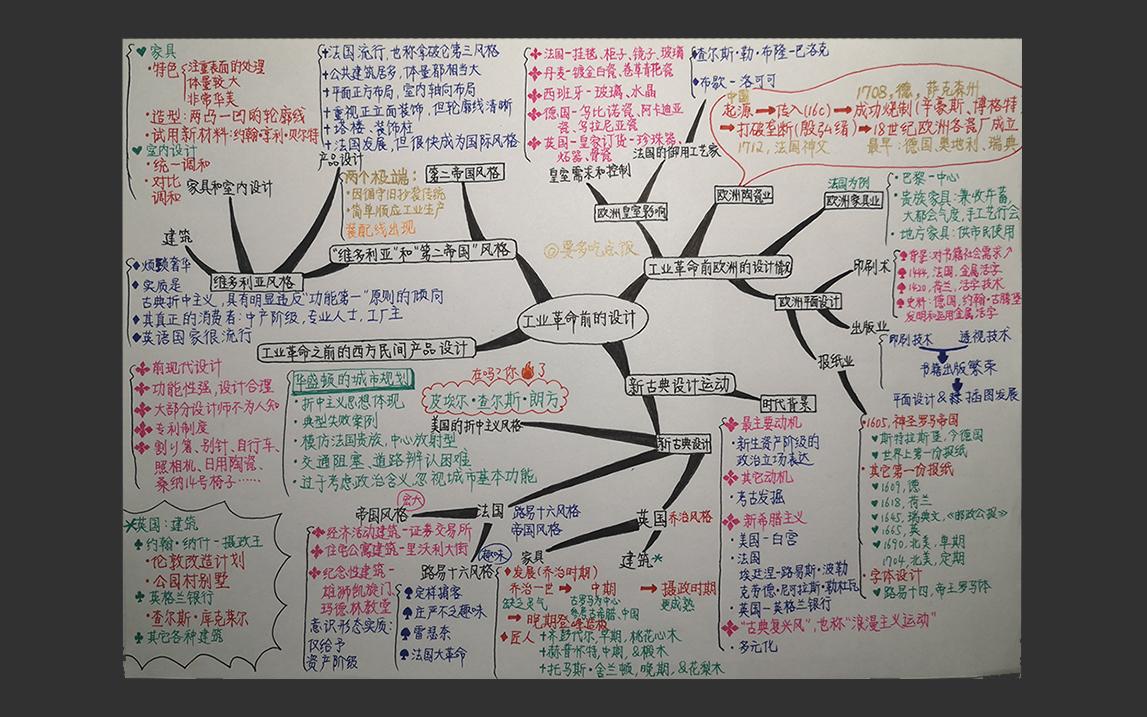 ♥家具
·特色
注重表面的处理
体量较大
非常华美
·造型:两凸一凹的轮廓线
·试用新材料:约翰·亨利·贝尔特
♥室内设计
·统一调和
·对比
调和
家具和室内设计
建筑
产品设计
维多利亚风格
♦烦颢奢华
♦实质是
古典折中主义,具有明显违反"功能第一"原则的倾向
♦其真正的消费者:中产阶级,专业人士,工厂主
♦英语国家很流行
+法国流行,也称拿破仑第三风格
+公共建筑居多,体量都相当大
+平面正方布局,室内轴向布局
+重视正立面装饰,但轮廓线清晰
+塔楼、装饰柱
+法国发展,但很快成为国际风格
第二帝国风格
两个极端:
·因循守旧抄袭传统
·简单顺应工业生产
装配线出现
"维多利亚"和"第二帝国"风格
✤法国-挂毯、柜子、镜子、玻璃
✤丹麦-镀金白瓷、卷草青花瓷
✤西班牙-玻璃、水晶
✤德国-乌比诺瓷、阿卡迪亚
瓷、乌拉尼亚瓷
✤英国-皇家订货-珍珠器、
炻器、骨瓷
皇室需求和控制
♦查尔斯·勒·布隆-巴洛克
♦布歇-洛可可
法国的御用工艺家
欧洲皇室影响
中国
1708,德,萨克森州
起源➡传入(16c)➡成功烧制(辛豪斯、博格特
➡打破垄断(殷弘绪)➡18世纪欧洲各瓷厂成立
1712,法国神父
最早:德国,奥地利,瑞典
欧洲陶瓷业
法国为例
欧洲家具业
·巴黎-中心
·贵族家具:兼收并蓄,
大都会气度,手工艺行会
·地方家具:供市民使用
◎要多吃点饭
工业革命前欧洲的设计情况
欧洲平面设计
印刷术
♠背景:对书籍社会需求↗
♠1444,法国,金属活字
♠1420,荷兰,活字技术
♠史料:德国,约翰·古腾堡
发明和运用金属活字
出版业
印刷技术 透视技术
书籍出版繁荣
平面设计& 插图发展
报纸业
·1605,神圣罗马帝国
♥斯特拉斯亚,今德国
♥世界上第一份报纸
·其它第一份报纸
♥1609,德
♥1618,荷兰
♥1645,瑞典文,《邮政公报》
♥1665,英
♥1690,北美,早期
1704,北美,定期
·字体设计
♥路易十四,帝王罗马体
工业革命前的设计
工业革命之前的西方民间产品设计
✤前现代设计
✤功能性强,设计合理
✤大部分设计师不为人知
✤专利制度
✤割り箸、别针、自行车、
照相机、日用陶瓷、
桑纳14号椅子……
华盛顿的城市规划
·折中主义思想体现
·典型失败案例
·模仿法国贵族,中心放射型
·交通阻塞,道路辨认困难
·过于考虑政治含义,忽视城市基本功能
在吗?你🔥了
皮埃尔·查尔斯·朗方
美国的折中主义风格
新古典设计运动
时代背景
✤最主要动机
·新生资产阶级的
政治立场表达
✤其它动机
·考古发掘
✤新希腊主义
·美国-白宫
·法国
埃廷涅-路易斯·波勒
克劳德·尼古拉斯·勒杜瓦
·英国-英格兰银行
✤"古典复兴风",也称"浪漫主义运动"
·多元化
新古典设计
宏大
帝国风格
法国
路易十六风格
帝国风格
✤经济活动建筑-证券交易所
✤住宅公寓建筑-里沃利大街
✤纪念性建筑-
雄狮凯旋门,
玛德林教堂
意识形态实质:
仅给予
资产阶级
趣味
路易十六风格
♠定样搞客
♠庄严不乏趣味
♠雷瑟奈
♠法国大革命
英国
乔治风格
家具
建筑*
♦发展(乔治时期)
乔治一世➡中期➡摄政时期
缺乏灵气
古罗马为中心
参考古希腊、中国
更成熟
➡晚期登峰造极
♦匠人
+齐彭代尔,早期,桃花心木
+赫普怀特,中期,&椴木
+托马斯·舍兰顿,晚期,&花梨木
*英国:建筑
♣约翰·纳什-摄政王
·伦敦改造计划
·公园村别墅
♣英格兰银行
·查尔斯·库克莱尔
♣其它各种建筑